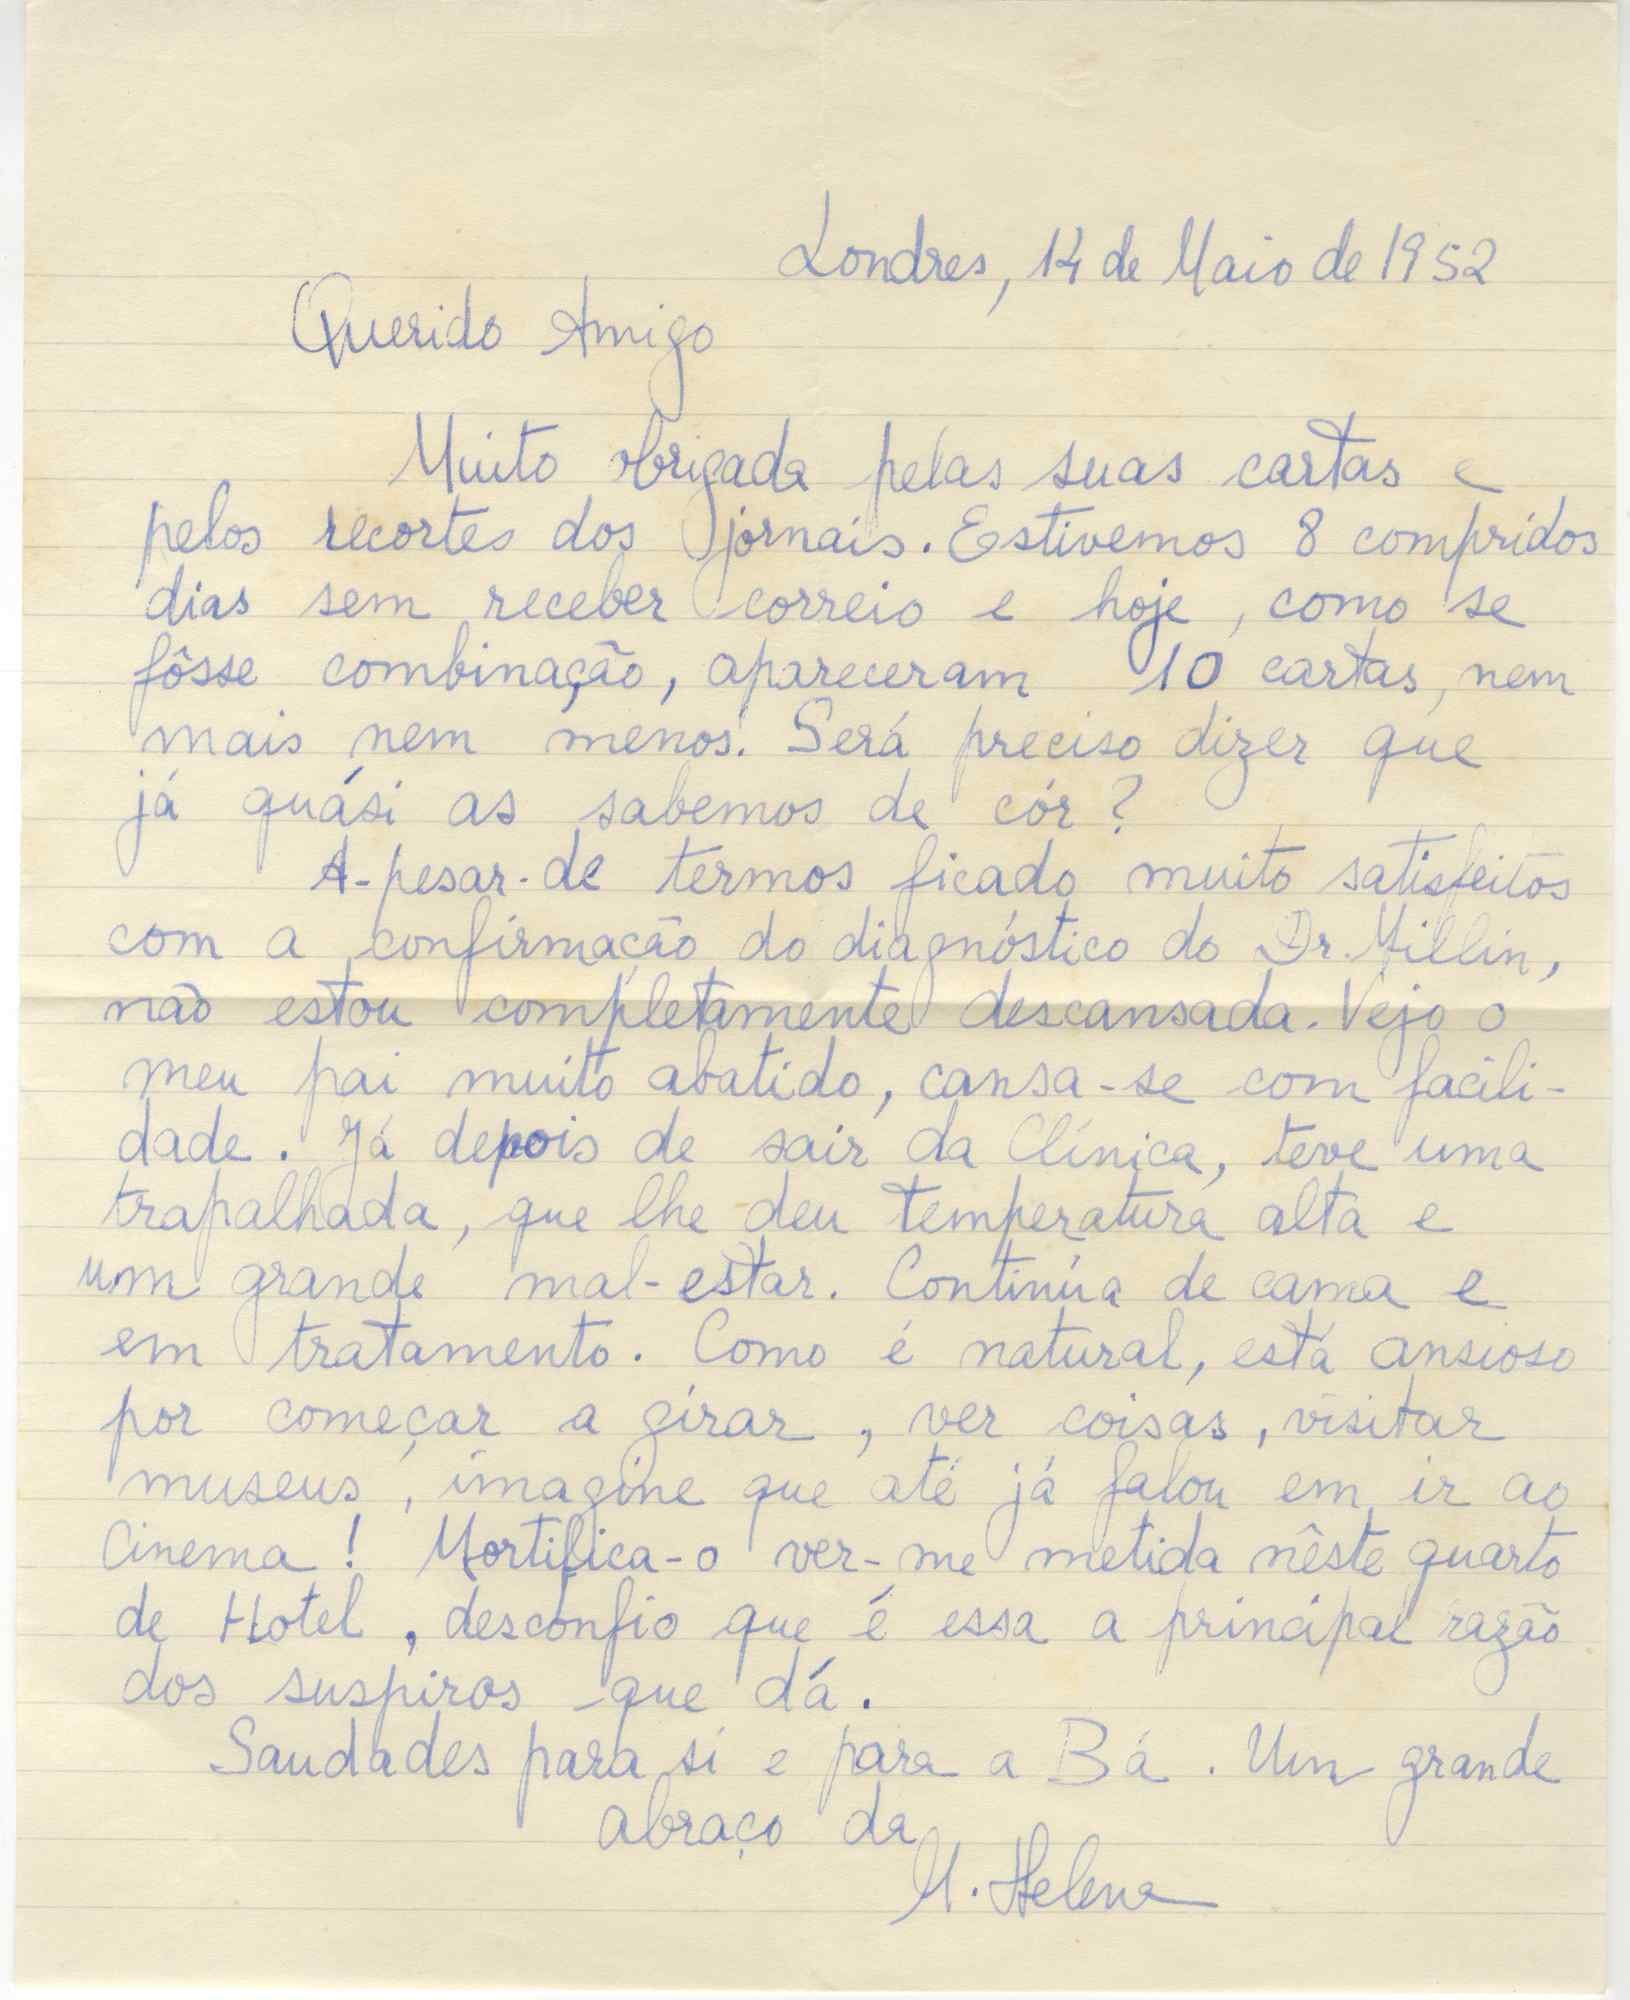 Londres, 14 de Maio de 1952
Querido Amigo
Muito obrigada pelas suas cartas e
pelos recortes dos jornais. Estivemos 8 compridos
dias sem receber correio e hoje, como se
fôsse combinação, apareceram 10 cartas, nem
mais nem menos! Será preciso dizer que
já quási as sabemos de cór?
A-pesar-de termos ficado muito satisfeitos
com a confirmação do diagnóstico do Dr. Millin,
não estou completamente descansada. Vejo o
meu pai muito abatido, cansa-se com facili-
dade. Já depois de sair da Clínica, teve uma
trapalhada, que lhe deu temperatura alta e
um grande mal-estar. Continúa de cama e
em tratamento. Como é natural, está ansioso
por começar a girar, ver coisas, visitar
museus, imagine que até já falou em ir ao
Cinema! Mortifica-o ver-me metida nêste quarto
de Hotel, desconfio que é essa a principal razão
dos suspiros que dá.
Saudades para si e para a Bá. Um grande
abraço da
M. Helena